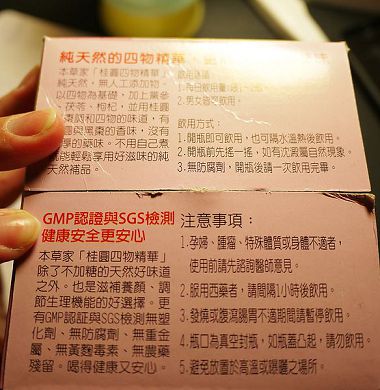 純天然的四物精華
本草家「桂圓四物精華」
純天然，無人工添加物，
以四物為基礎，加上黨參
茯苓、枸杞，並用桂圓
棗調和四物的味道，有
圓與黑棗的香味，沒有
的藥味。不用自己煮
能輕鬆享用好滋味的純
天然補品。
飲用建議
1.每日飲用量
2.男女皆可飲用。
飲用方式：
1.開瓶即可飲用，也可隔水溫熱後飲用。
2.開瓶前先搖一搖，如有沈澱屬自然現象。
3.無防腐劑，開瓶後請一次飲用完畢。
GMP認證與SGS檢測
健康安全更安心
本草家「桂圓四物精華」
除了不加糖的天然好味道
之外，也是滋補養顏、調
節生理機能的好選擇。更
有GMP認證與SGS檢測無塑
化劑、無防腐劑、無重金
屬、無黃麴毒素、無農藥
殘留。喝得健康又安心。
注意事項：
1.孕婦、腫瘤、特殊體質或身體不適者，
使用前請先諮詢醫師意見。
2.服用西藥者，請間隔1小時後飲用。
3.發燒或腹瀉腸胃不適期間請暫停飲用。
4.瓶口為真空封瓶，如瓶蓋凸起，請勿飲用。
5.避免放置於高溫或曝曬之場所。